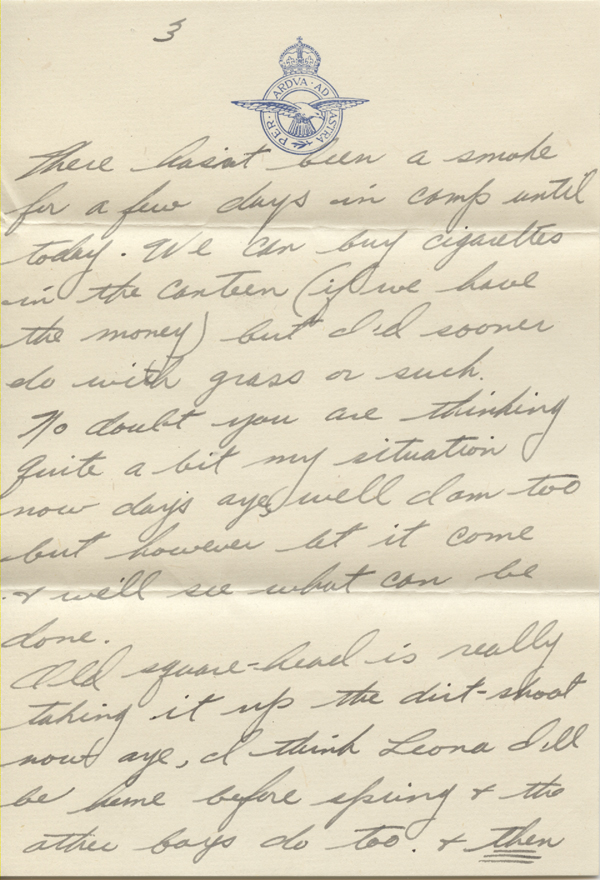 3
PER · ARDVA · AD ASTRA
There hasn't been a smoke
for a few days in camp until
today. We can buy cigarettes
in the canteen (if we have
the money) but I'd sooner
do with grass or such.
No doubt you are thinking
quite a bit my situation
now days aye, well I am too
but however let it come
& we'll see what can be
done.
Old square-head is really
taking it up the dirt-shoot
now aye, I think Leona I'll
be home before spring & the
other boys do too. & then